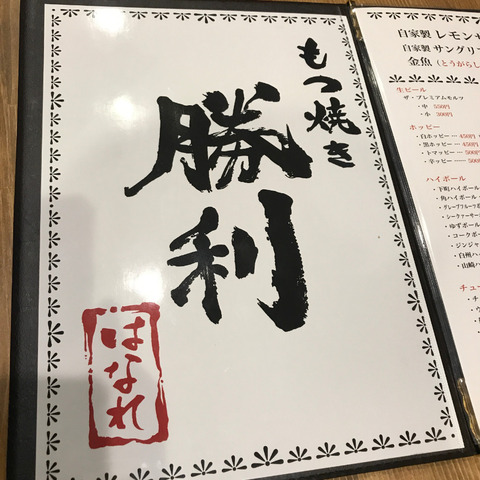 もつ焼き
勝利
はなれ
自家製 レモンサ
自家製 サングリア
金魚 (とうがらし
生ビール
ザ・プレミアムモルツ
・中 550円
・小 300円
ホッピー
・白ホッピー 450円
・黒ホッピー 450円
・トマッピー 500
・辛ッピー 500
ハイボール
・下町ハイボール
・角ハイボール
・グレープフルーツ
・シークァーサー
・ゆずボール
・コークボー
・ジンジャ
・白州ハ
・山崎ハ
チュー
・チ
・ウ